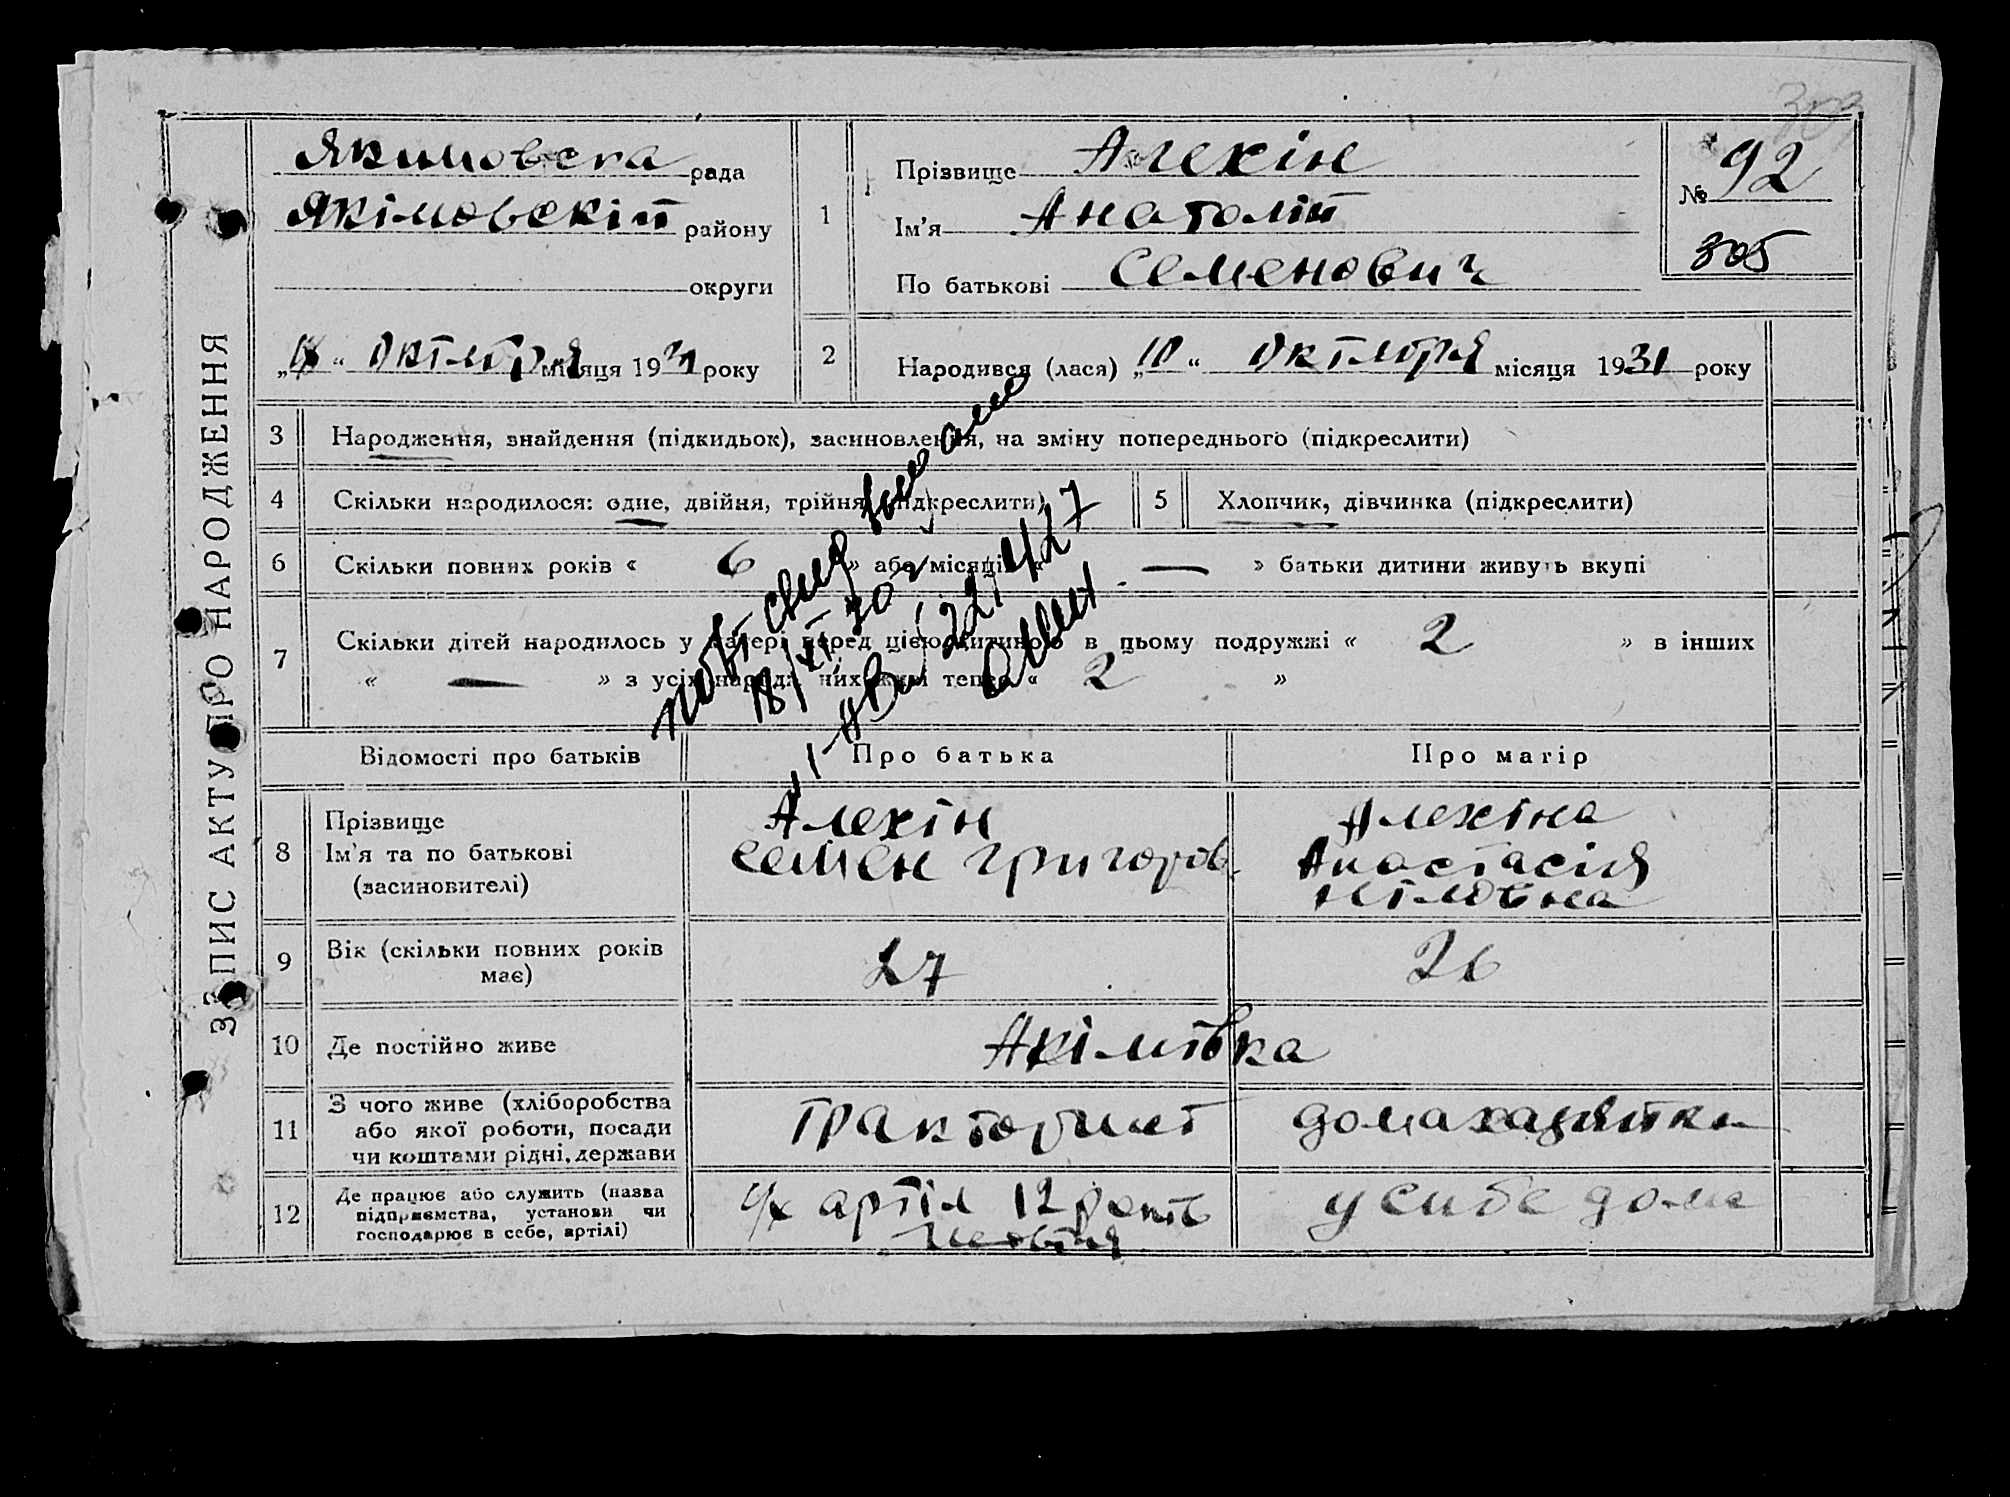 309
ЗАПИС АКТУ ПРО НАРОДЖЕННЯ
Якимовска рада
Якімовскій району
округи
" " Октября місяця 1931 року
1
Прізвище Алехін
Ім'я Анатолій
По батькові Семенович
№ 92
305
2
Народився (лася) „10“ Октября місяця 1931 року
3 Народження, знайдення (підкидьок), засиновлення, на зміну попереднього (підкреслити)
4 Скільки народилося: одне, двійня, трійня (підкреслити)
5 Хлопчик, дівчинка (підкреслити)
6 Скільки повних років « 6 » або місяців « — » батьки дитини живуть вкупі
7 Скільки дітей народилось у матері перед цією дитиною в цьому подружжі « 2 » в інших
« — » з усіх народжених живі тепер « 2 »
повт свид выслано
18/XI 70
Відомості про батьків
Про батька
Про матір
8 Прізвище
Ім'я та по батькові
(засиновителі)
Алехін
Семен Григоров.
Алехіна
Анастасія
Ніловна
9 Вік (скільки повних років
має)
27
26
10 Де постійно живе
Акімовка
11 З чого живе (хліборобства
або якої роботи, посади
чи коштами рідні, держави
тракторист
домахазяйка
12 Де працює або служить (назва
підприємства, установи чи
господарює в себе, артілі)
с/х артіл 12 років
Жовтня
у себе дома